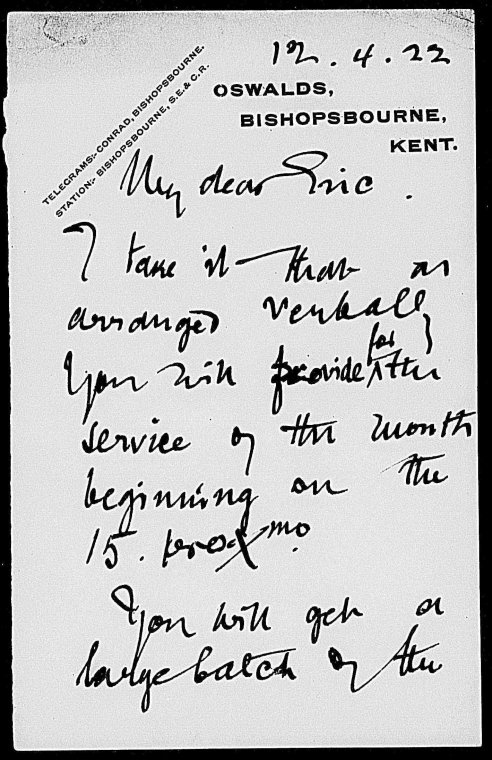 12.4.22
TELEGRAMS:- CONRAD, BISHOPSBOURNE.
STATION:- BISHOPSBOURNE, S.E. & C.R.
OSWALDS,
BISHOPSBOURNE,
KENT.
My dear Eric.
I take it that as
arranged verbally
for
You will provide the
service of the month
beginning on the
15. prox mo
You will get a
large batch of the